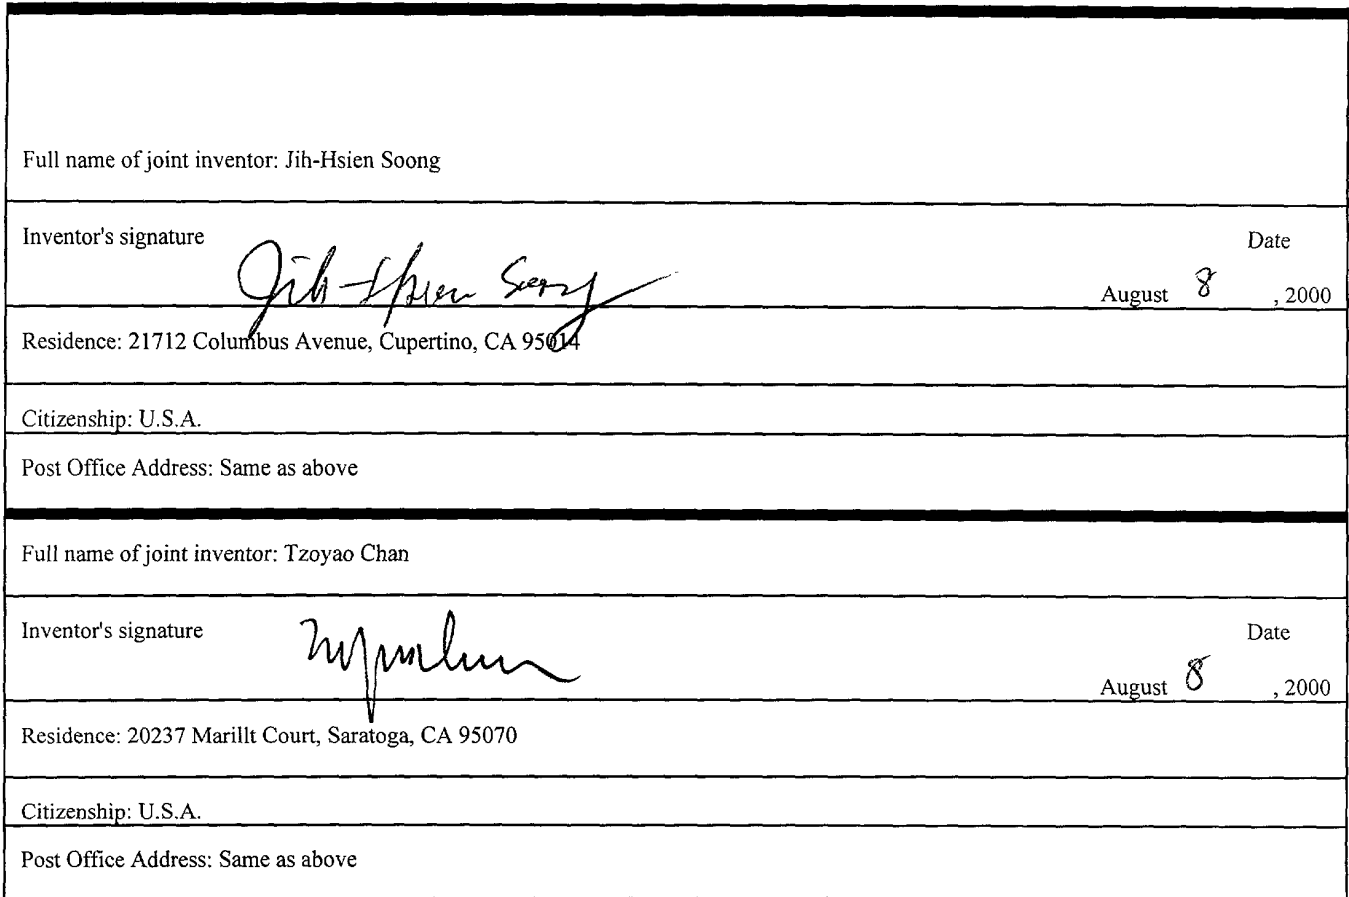 Full name of joint inventor: Jih-Hsien Soong
Inventor's signature Date
Jih-Hsien Soong
August 8, 2000
Residence: 21712 Columbus Avenue, Cupertino, CA 95014
Citizenship: U.S.A.
Post Office Address: Same as above
Full name of joint inventor: Tzoyao Chan
Inventor's signature Date
August 8, 2000
Residence: 20237 Marillt Court, Saratoga, CA 95070
Citizenship: U.S.A.
Post Office Address: Same as above